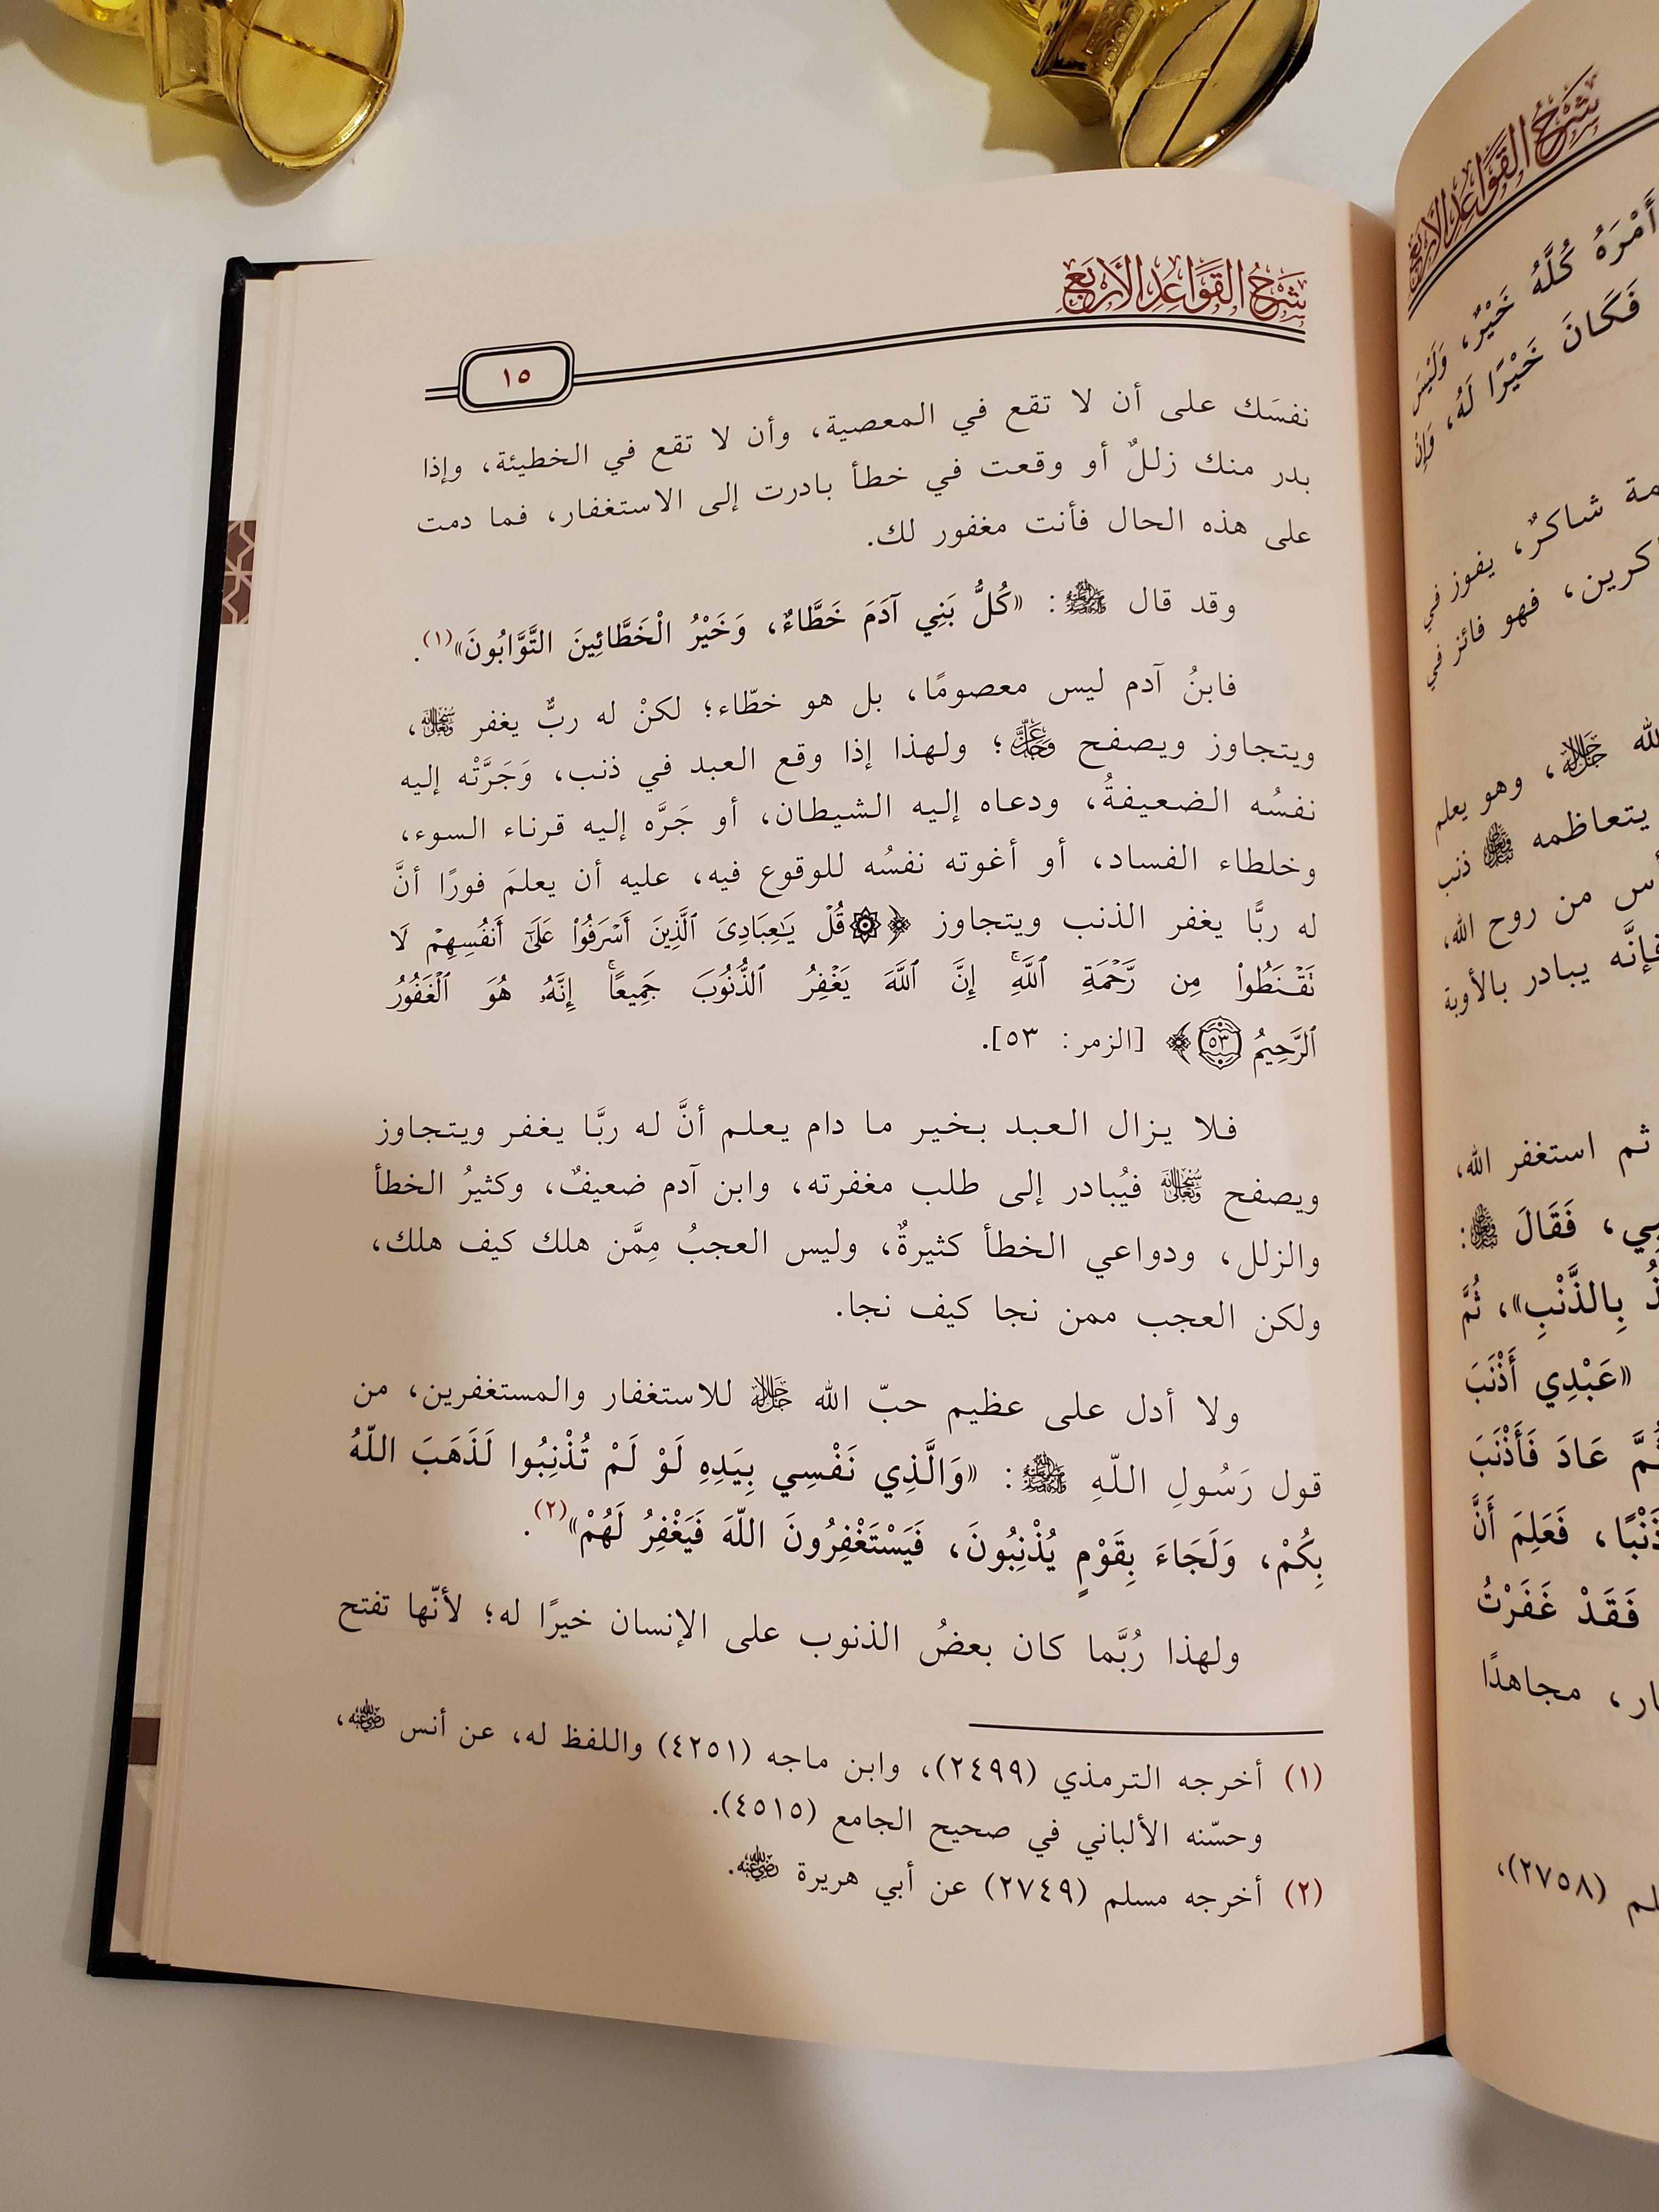 شَرْحُ القَوَاعِدِ الأَرْبَعِ
١٥
نفسَك على أن لا تقع في المعصية، وأن لا تقع في الخطيئة، وإذا
بدر منك زللٌ أو وقعت في خطأ بادرت إلى الاستغفار، فما دمت
على هذه الحال فأنت مغفور لك.
وقد قال ﷺ: «كُلُّ بَنِي آدَمَ خَطَّاءٌ، وَخَيْرُ الْخَطَّائِينَ التَّوَّابُونَ»(١).
فابنُ آدم ليس معصومًا، بل هو خطّاء؛ لكنْ له ربٌّ يغفر سُبْحَانَهُ وَتَعَالَى،
ويتجاوز ويصفح عَزَّ وَجَلَّ؛ ولهذا إذا وقع العبد في ذنب، وَجَرَّتْه إليه
نفسُه الضعيفةُ، ودعاه إليه الشيطان، أو جَرَّه إليه قرناء السوء،
وخلطاء الفساد، أو أغوته نفسُه للوقوع فيه، عليه أن يعلمَ فورًا أنَّ
له ربًّا يغفر الذنب ويتجاوز ﴿۞قُلۡ يَٰعِبَادِيَ ٱلَّذِينَ أَسۡرَفُواْ عَلَىٰٓ أَنفُسِهِمۡ لَا
تَقۡنَطُواْ مِن رَّحۡمَةِ ٱللَّهِۚ إِنَّ ٱللَّهَ يَغۡفِرُ ٱلذُّنُوبَ جَمِيعًاۚ إِنَّهُۥ هُوَ ٱلۡغَفُورُ
ٱلرَّحِيمُ ٥٣﴾ [الزمر: ٥٣].
فلا يزال العبد بخير ما دام يعلم أنَّ له ربَّا يغفر ويتجاوز
ويصفح سُبْحَانَهُ وَتَعَالَى فيُبادر إلى طلب مغفرته، وابن آدم ضعيفٌ، وكثيرُ الخطأ
والزلل، ودواعي الخطأ كثيرةٌ، وليس العجبُ مِمَّن هلك كيف هلك،
ولكن العجب ممن نجا كيف نجا.
ولا أدل على عظيم حبّ الله جَلَّ جَلَالُهُ للاستغفار والمستغفرين، من
قول رَسُولِ اللّهِ ﷺ: «وَالَّذِي نَفْسِي بِيَدِهِ لَوْ لَمْ تُذْنِبُوا لَذَهَبَ اللّهُ
بِكُمْ، وَلَجَاءَ بِقَوْمٍ يُذْنِبُونَ، فَيَسْتَغْفِرُونَ اللّهَ فَيَغْفِرُ لَهُمْ»(٢).
ولهذا رُبَّما كان بعضُ الذنوب على الإنسان خيرًا له؛ لأنّها تفتح
(١) أخرجه الترمذي (٢٤٩٩)، وابن ماجه (٤٢٥١) واللفظ له، عن أنس رَضِيَ اللَّهُ عَنْهُ،
وحسّنه الألباني في صحيح الجامع (٤٥١٥).
(٢) أخرجه مسلم (٢٧٤٩) عن أبي هريرة رَضِيَ اللَّهُ عَنْهُ.
شَرْحُ القَوَاعِدِ الأَرْبَعِ
أَمْرَهُ كُلَّهُ خَيْرٌ، وَلَيْسَ
فَكَانَ خَيْرًا لَهُ، وَإِنْ
شاكرٌ، يفوز في
فهو فائز في
جَلَّ جَلَالُهُ، وهو يعلم
يتعاظمه تَبَارَكَ وَتَعَالَى ذنب
من روح الله،
فإنَّه يبادر بالأوبة
ثم استغفر الله،
فَقَالَ تَبَارَكَ وَتَعَالَى:
بِالذَّنْبِ»، ثُمَّ
«عَبْدِي أَذْنَبَ
ثُمَّ عَادَ فَأَذْنَبَ
ذَنْبًا، فَعَلِمَ أَنَّ
فَقَدْ غَفَرْتُ
مجاهدًا
(٢٧٥٨)،